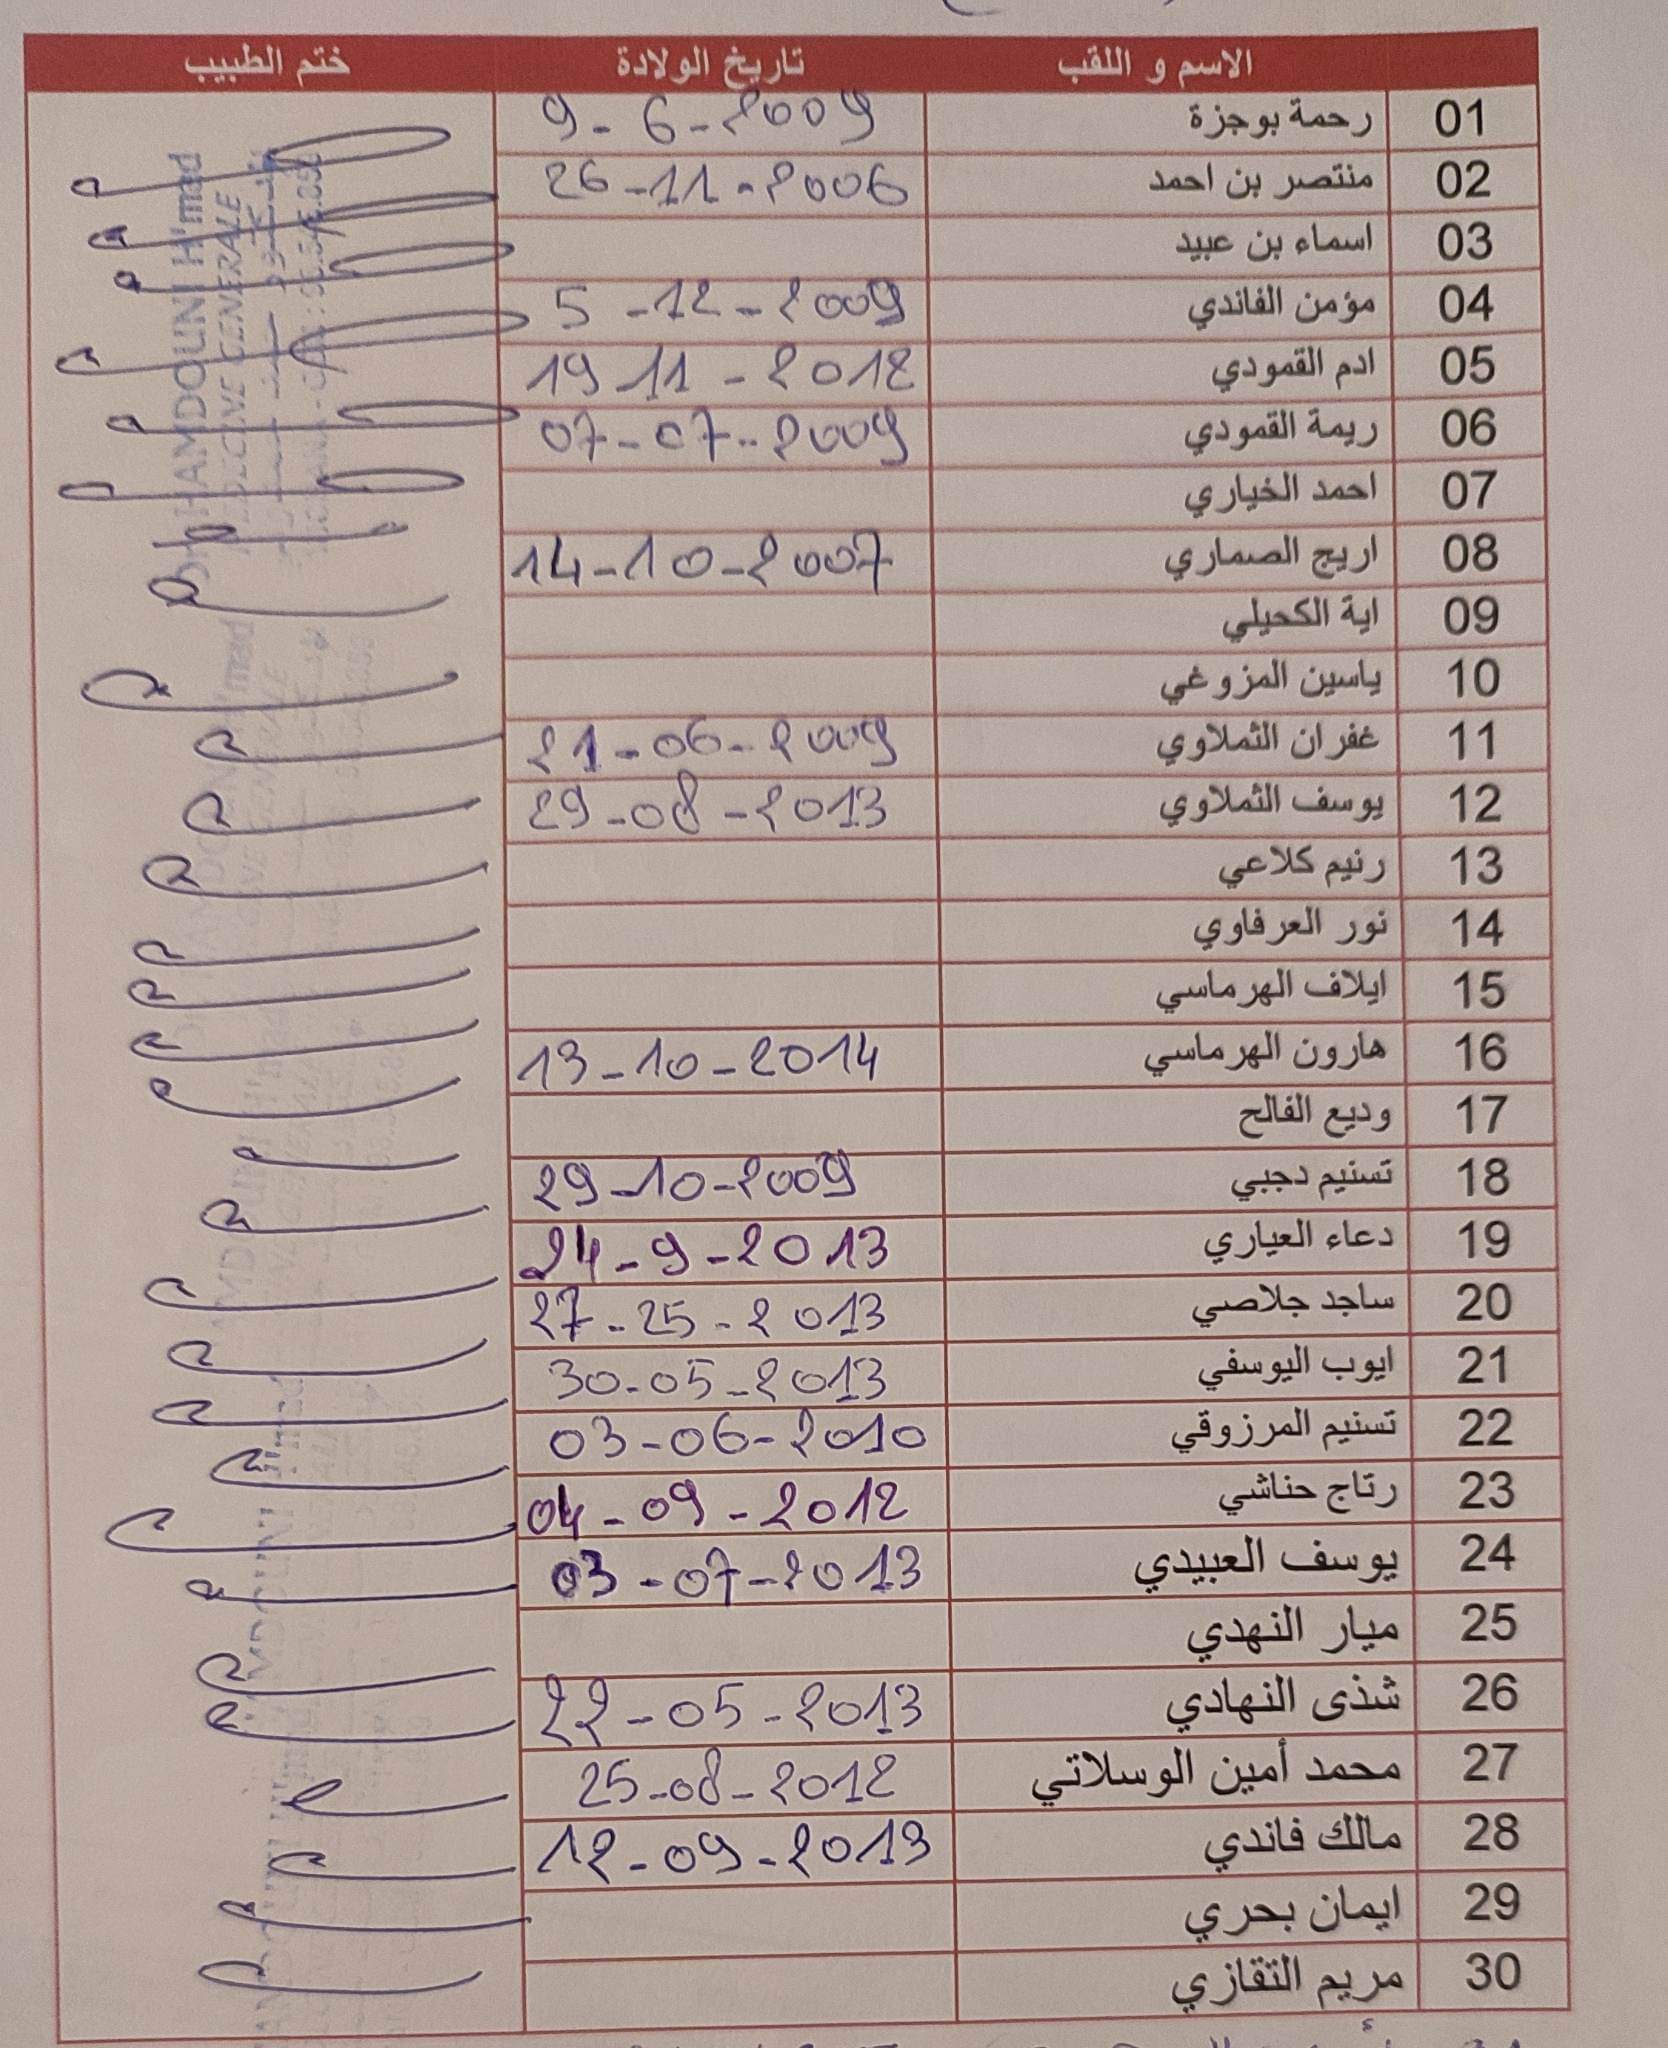 الاسم و اللقب تاريخ الولادة ختم الطبيب
01 رحمة بوجزة 9-6-2009
02 منتصر بن احمد 26-11-2006
03 اسماء بن عبيد
04 مؤمن الفاندي 5-12-2009
05 ادم القمودي 19 11-2012
06 ريمة القمودي 07-07-2009
07 احمد الخياري
08 اريج الصماري 14-10-2007
09 اية الكحيلي
10 ياسين المزوغي
11 غفران الثملاوي 21-06-2009
12 يوسف الثملاوي 29-08-2013
13 رنيم كلاعي
14 نور العرفاوي
15 ايلاف الهرماسي
16 هارون الهرماسي 13-10-2014
17 وديع الفالح
18 تسنيم دجبي 29-10-2009
19 دعاء العياري 24-9-2013
20 ساجد جلاصي 27-25-2013
21 ايوب اليوسفي 30-05-2013
22 تسنيم المرزوقي 03-06-2010
23 رتاج حناشي 04-09-2012
24 يوسف العبيدي 03-07-2013
25 ميار النهدي
26 شذى النهادي 22-05-2013
27 محمد أمين الوسلاتي 25-08-2012
28 مالك فاندي 12-09-2013
29 ايمان بحري
30 مريم التقازي
HAMDOUNI H'med
MEDECINE GENERALE